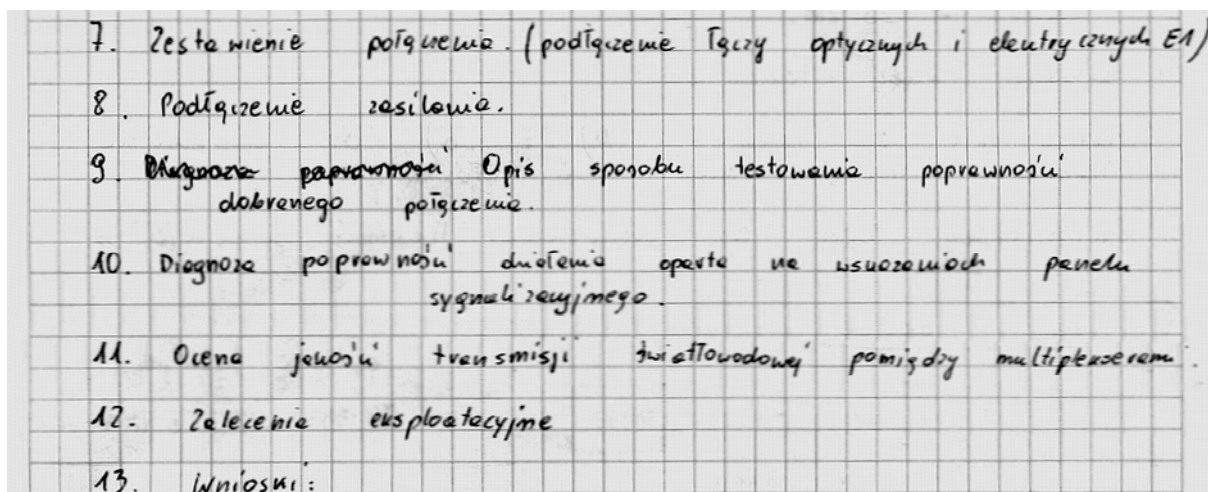 7. Zestawienie połączenia. (podłączenie łączy optycznych i elektrycznych E1)
8. Podłączenie zasilania.
9. Diagnoza poprawności Opis sposobu testowania poprawności
dobranego połączenia.
10. Diagnoza poprawności działania oparta na wskazaniach panelu
sygnalizacyjnego.
11. Ocena jakości transmisji światłowodowej pomiędzy multiplekserami.
12. Zalecenia eksploatacyjne
13. Wnioski: